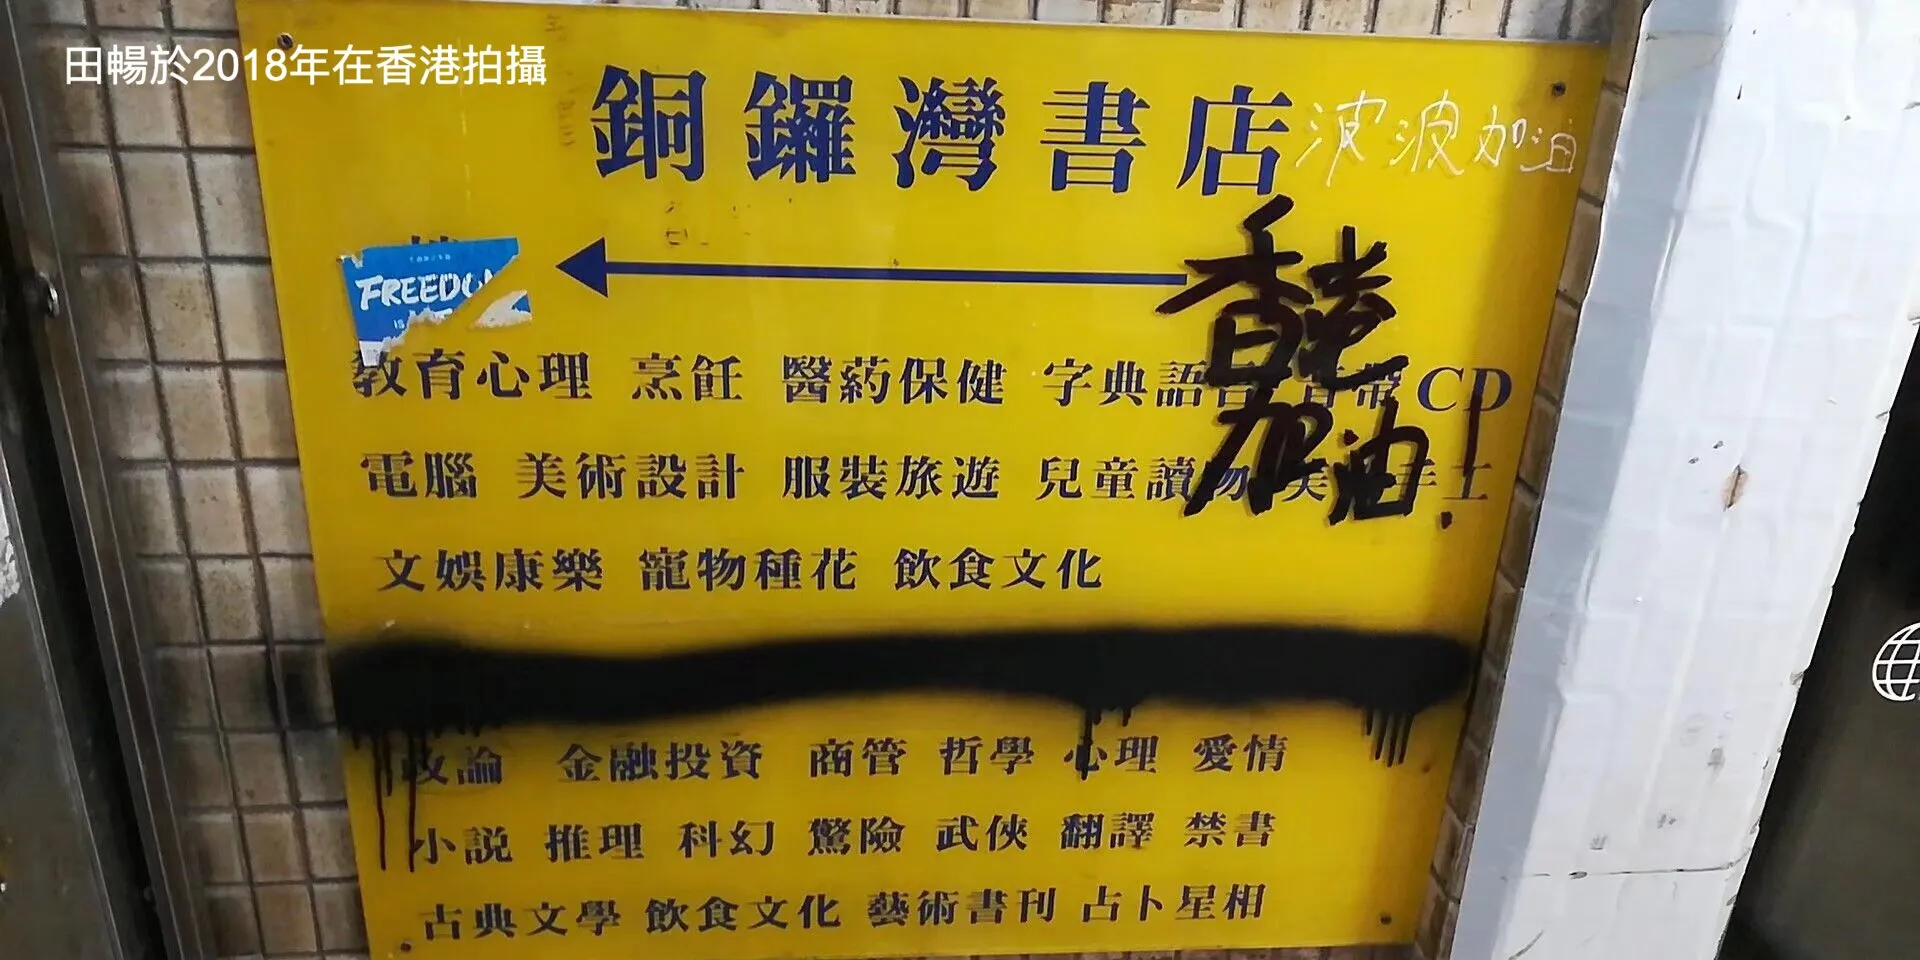 田暢於2018年在香港拍攝
銅鑼灣書店
波波加油
香港
加油!
FREEDO
IS
教育心理 烹飪 醫葯保健 字典語言 音帶 CD
電腦 美術設計 服裝旅遊 兒童讀物 美 手工
文娛康樂 寵物種花 飲食文化
政論 金融投資 商管 哲學 心理 愛情
小説 推理 科幻 驚險 武俠 翻譯 禁書
古典文學 飲食文化 藝術書刊 占卜星相